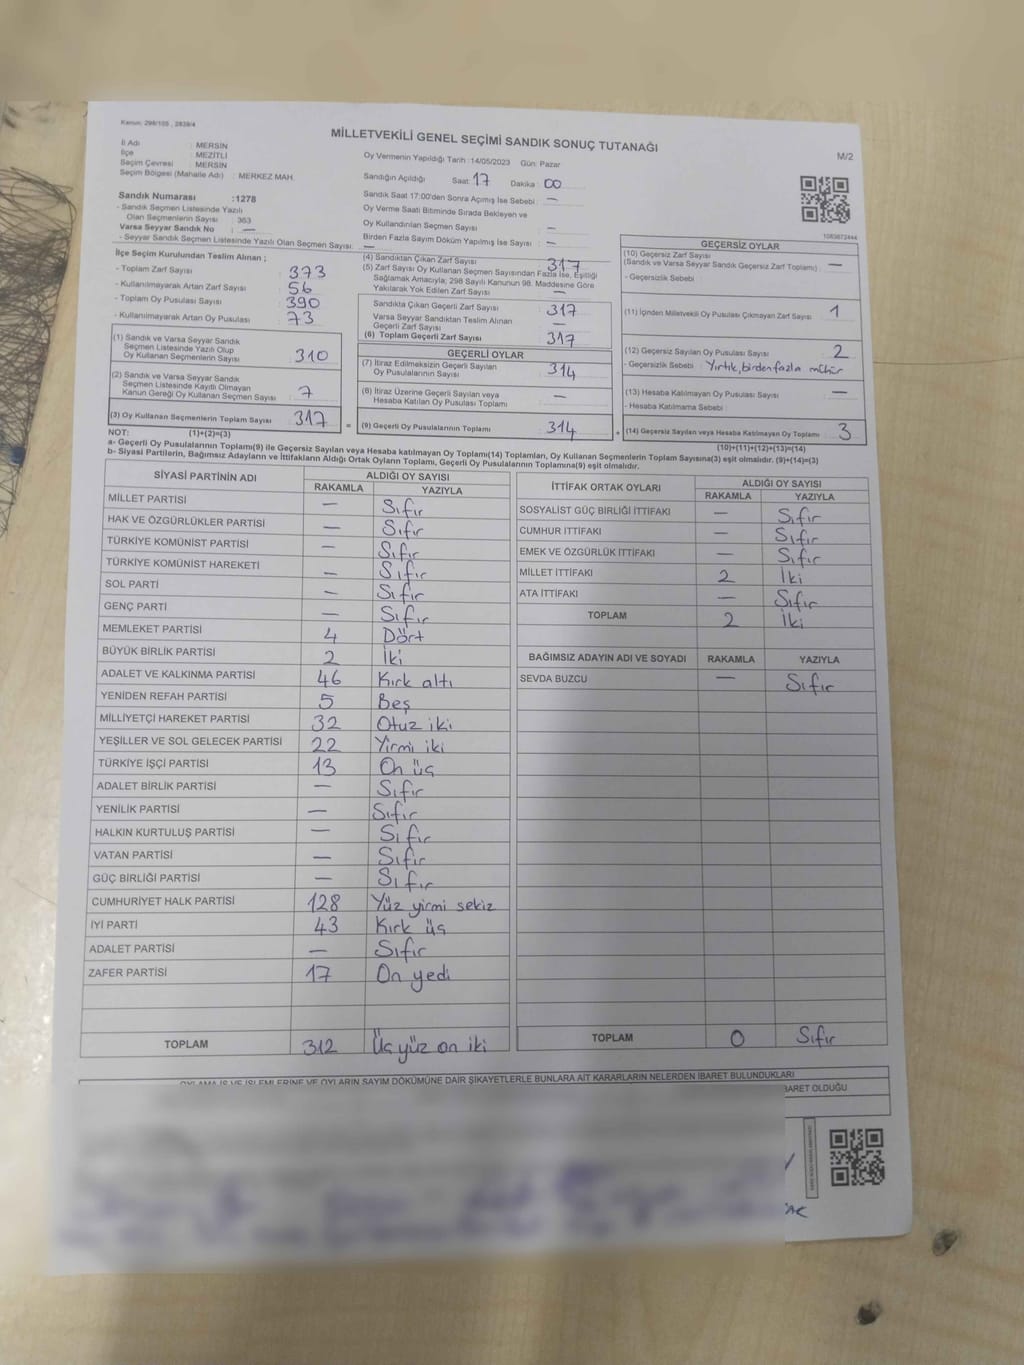 Kanun: 298/105 , 2839/4
MİLLETVEKİLİ GENEL SEÇİMİ SANDIK SONUÇ TUTANAĞI
M/2
İl Adı : MERSİN
İlçe : MEZİTLİ
Seçim Çevresi : MERSİN
Seçim Bölgesi (Mahalle Adı) : MERKEZ MAH.
Oy Vermenin Yapıldığı Tarih :14/05/2023 Gün: Pazar
Sandığın Açıldığı Saat: 17 Dakika: 00
Sandık Numarası :1278
- Sandık Seçmen Listesinde Yazılı
Olan Seçmenlerin Sayısı : 363
Varsa Seyyar Sandık No : —
- Seyyar Sandık Seçmen Listesinde Yazılı Olan Seçmen Sayısı: —
Sandık Saat 17:00'den Sonra Açımış İse Sebebi : —
Oy Verme Saati Bitiminde Sırada Bekleyen ve
Oy Kullandırılan Seçmen Sayısı : —
Birden Fazla Sayım Döküm Yapılmış İse Sayısı : —
1083672444
İlçe Seçim Kurulundan Teslim Alınan ;
- Toplam Zarf Sayısı 373
- Kullanılmayarak Artan Zarf Sayısı 56
- Toplam Oy Pusulası Sayısı 390
- Kullanılmayarak Artan Oy Pusulası 73
(1) Sandık ve Varsa Seyyar Sandık
Seçmen Listesinde Yazılı Olup
Oy Kullanan Seçmenlerin Sayısı 310
(2) Sandık ve Varsa Seyyar Sandık
Seçmen Listesinde Kayıtlı Olmayan
Kanun Gereği Oy Kullanan Seçmen Sayısı 7
(3) Oy Kullanan Seçmenlerin Toplam Sayısı 317
(4) Sandıktan Çıkan Zarf Sayısı 317
(5) Zarf Sayısı Oy Kullanan Seçmen Sayısından Fazla İse, Eşitliği
Sağlamak Amacıyla; 298 Sayılı Kanunun 98. Maddesine Göre
Yakılarak Yok Edilen Zarf Sayısı —
Sandıkta Çıkan Geçerli Zarf Sayısı 317
Varsa Seyyar Sandıktan Teslim Alınan
Geçerli Zarf Sayısı —
(6) Toplam Geçerli Zarf Sayısı 317
GEÇERLİ OYLAR
(7) İtiraz Edilmeksizin Geçerli Sayılan
Oy Pusulalarının Sayısı 314
(8) İtiraz Üzerine Geçerli Sayılan veya
Hesaba Katılan Oy Pusulası Toplamı —
= (9) Geçerli Oy Pusulalarının Toplamı 314
GEÇERSİZ OYLAR
(10) Geçersiz Zarf Sayısı
(Sandık ve Varsa Seyyar Sandık Geçersiz Zarf Toplamı) —
- Geçersizlik Sebebi :
(11) İçinden Milletvekili Oy Pusulası Çıkmayan Zarf Sayısı 1
(12) Geçersiz Sayılan Oy Pusulası Sayısı 2
- Geçersizlik Sebebi : Yırtık, birden fazla mühür
(13) Hesaba Katılmayan Oy Pusulası Sayısı —
- Hesaba Katılmama Sebebi :
+ (14) Geçersiz Sayılan veya Hesaba Katılmayan Oy Toplamı 3
NOT: (1)+(2)=(3)
(10)+(11)+(12)+(13)=(14)
a- Geçerli Oy Pusulalarının Toplamı(9) ile Geçersiz Sayılan veya Hesaba katılmayan Oy Toplamı(14) Toplamları, Oy Kullanan Seçmenlerin Toplam Sayısına(3) eşit olmalıdır. (9)+(14)=(3)
b- Siyasi Partilerin, Bağımsız Adayların ve İttifakların Aldığı Ortak Oyların Toplamı, Geçerli Oy Pusulalarının Toplamına(9) eşit olmalıdır.
SİYASİ PARTİNİN ADI ALDIĞI OY SAYISI
RAKAMLA YAZIYLA
MİLLET PARTİSİ — Sıfır
HAK VE ÖZGÜRLÜKLER PARTİSİ — Sıfır
TÜRKİYE KOMÜNİST PARTİSİ — Sıfır
TÜRKİYE KOMÜNİST HAREKETİ — Sıfır
SOL PARTİ — Sıfır
GENÇ PARTİ — Sıfır
MEMLEKET PARTİSİ 4 Dört
BÜYÜK BİRLİK PARTİSİ 2 İki
ADALET VE KALKINMA PARTİSİ 46 Kırk altı
YENİDEN REFAH PARTİSİ 5 Beş
MİLLİYETÇİ HAREKET PARTİSİ 32 Otuz iki
YEŞİLLER VE SOL GELECEK PARTİSİ 22 Yirmi iki
TÜRKİYE İŞÇİ PARTİSİ 13 On üç
ADALET BİRLİK PARTİSİ — Sıfır
YENİLİK PARTİSİ — Sıfır
HALKIN KURTULUŞ PARTİSİ — Sıfır
VATAN PARTİSİ — Sıfır
GÜÇ BİRLİĞİ PARTİSİ — Sıfır
CUMHURİYET HALK PARTİSİ 128 Yüz yirmi sekiz
İYİ PARTİ 43 Kırk üç
ADALET PARTİSİ — Sıfır
ZAFER PARTİSİ 17 On yedi
TOPLAM 312 Üç yüz on iki
İTTİFAK ORTAK OYLARI ALDIĞI OY SAYISI
RAKAMLA YAZIYLA
SOSYALİST GÜÇ BİRLİĞİ İTTİFAKI — Sıfır
CUMHUR İTTİFAKI — Sıfır
EMEK VE ÖZGÜRLÜK İTTİFAKI — Sıfır
MİLLET İTTİFAKI 2 İki
ATA İTTİFAKI — Sıfır
TOPLAM 2 İki
BAĞIMSIZ ADAYIN ADI VE SOYADI RAKAMLA YAZIYLA
SEVDA BUZCU — Sıfır
TOPLAM 0 Sıfır
OYLAMA İŞ VE İŞLEMLERİNE VE OYLARIN SAYIM DÖKÜMÜNE DAİR ŞİKAYETLERLE BUNLARA AİT KARARLARIN NELERDEN İBARET BULUNDUKLARI
BARET OLDUĞU